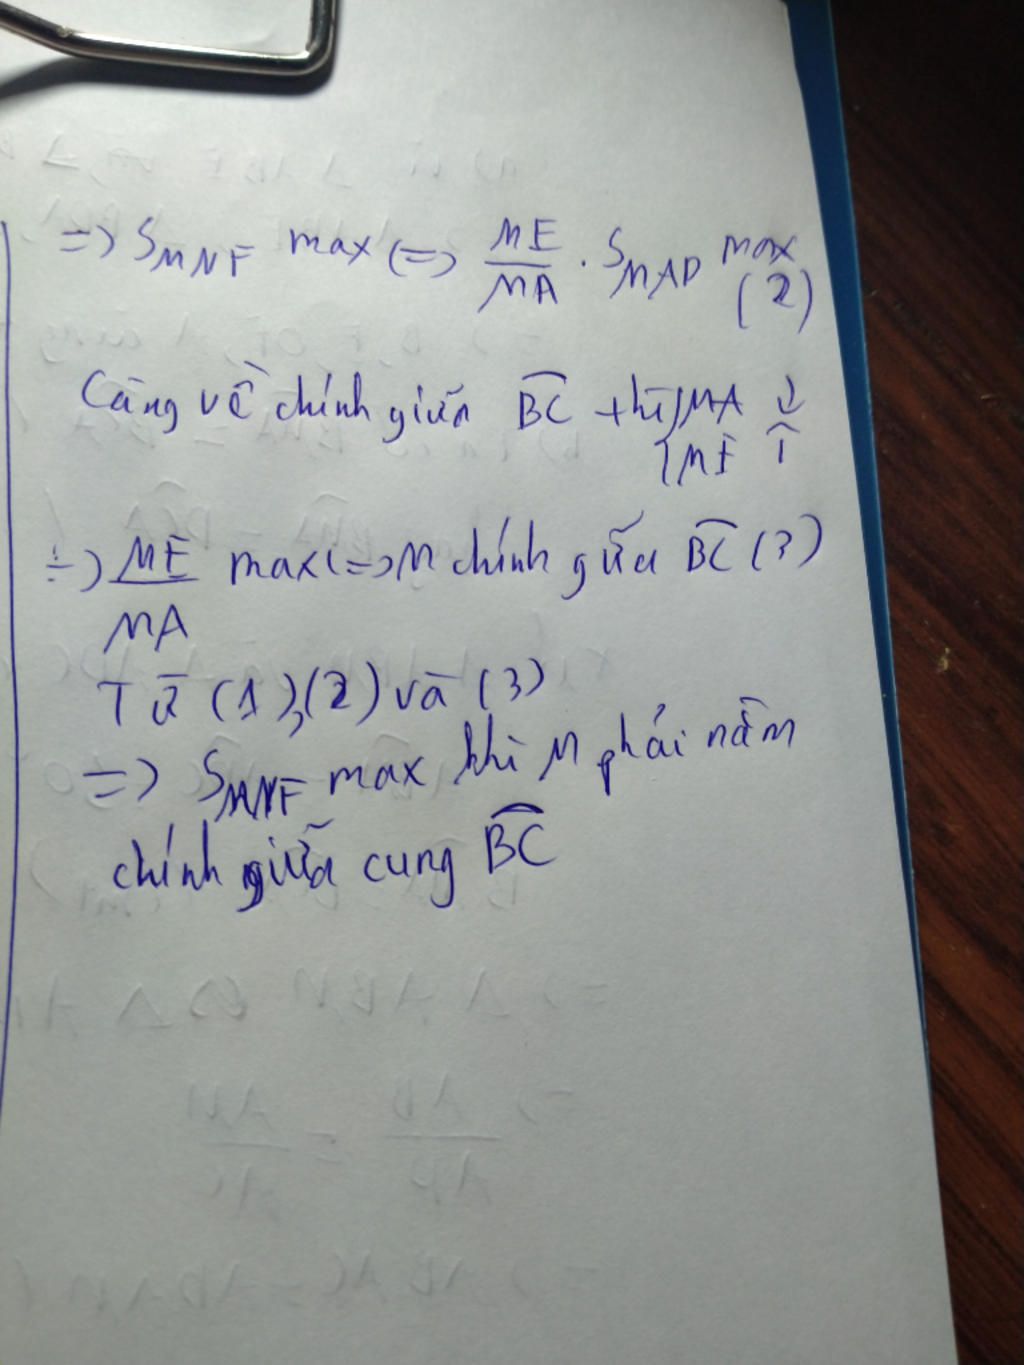 => S_MNF max <=> ME/MA . S_MAD max (2)
Càng về chính giữa BC thì { MA ↓
ME ↑
=> ME/MA max <=> M chính giữa BC (3)
Từ (1),(2) và (3)
=> S_MNF max khi M phải nằm
chính giữa cung BC